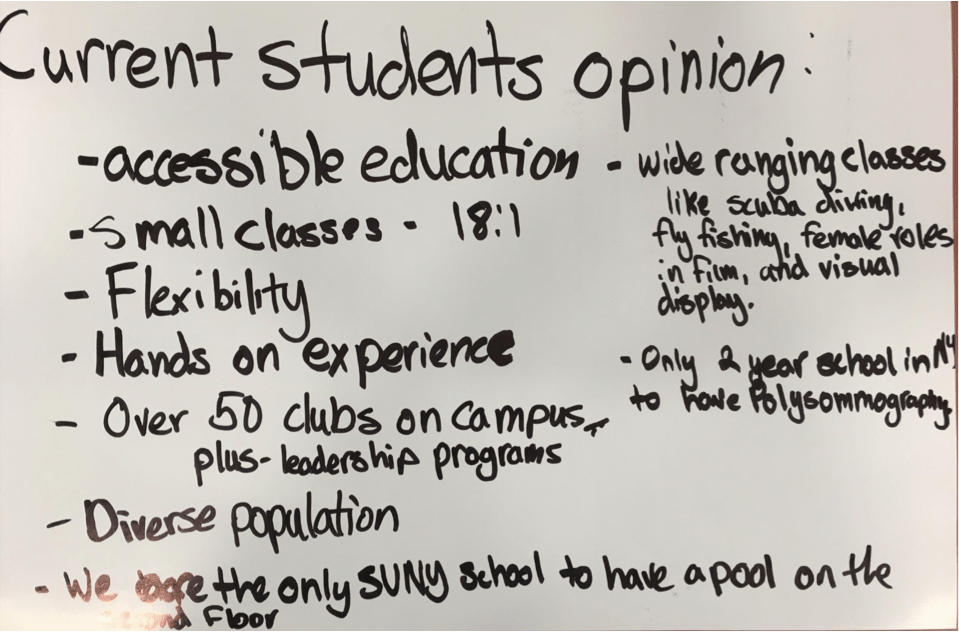 Current students opinion:
-accessible education
-Small classes - 18:1
- Flexibility
- Hands on experience
- Over 50 clubs on campus,
plus-leadership programs
- Diverse population
- We are the only SUNY school to have a pool on the
second Floor
- wide ranging classes
like scuba diving,
fly fishing, female roles
in film, and visual
display.
- Only 2 year school in NY
to have Polysommography